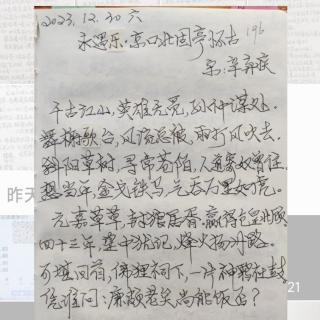 2023.12.30 六
永遇乐·京口北固亭怀古 196
宋:辛弃疾
千古江山,英雄无觅,孙仲谋处.
舞榭歌台,风流总被,雨打风吹去.
斜阳草树,寻常巷陌,人道寄奴曾住.
想当年,金戈铁马,气吞万里如虎.
元嘉草草,封狼居胥,赢得仓皇北顾.
四十三年,望中犹记,烽火扬州路.
可堪回首,佛狸祠下,一片神鸦社鼓
凭谁问:廉颇老矣尚能饭否?
昨天
21